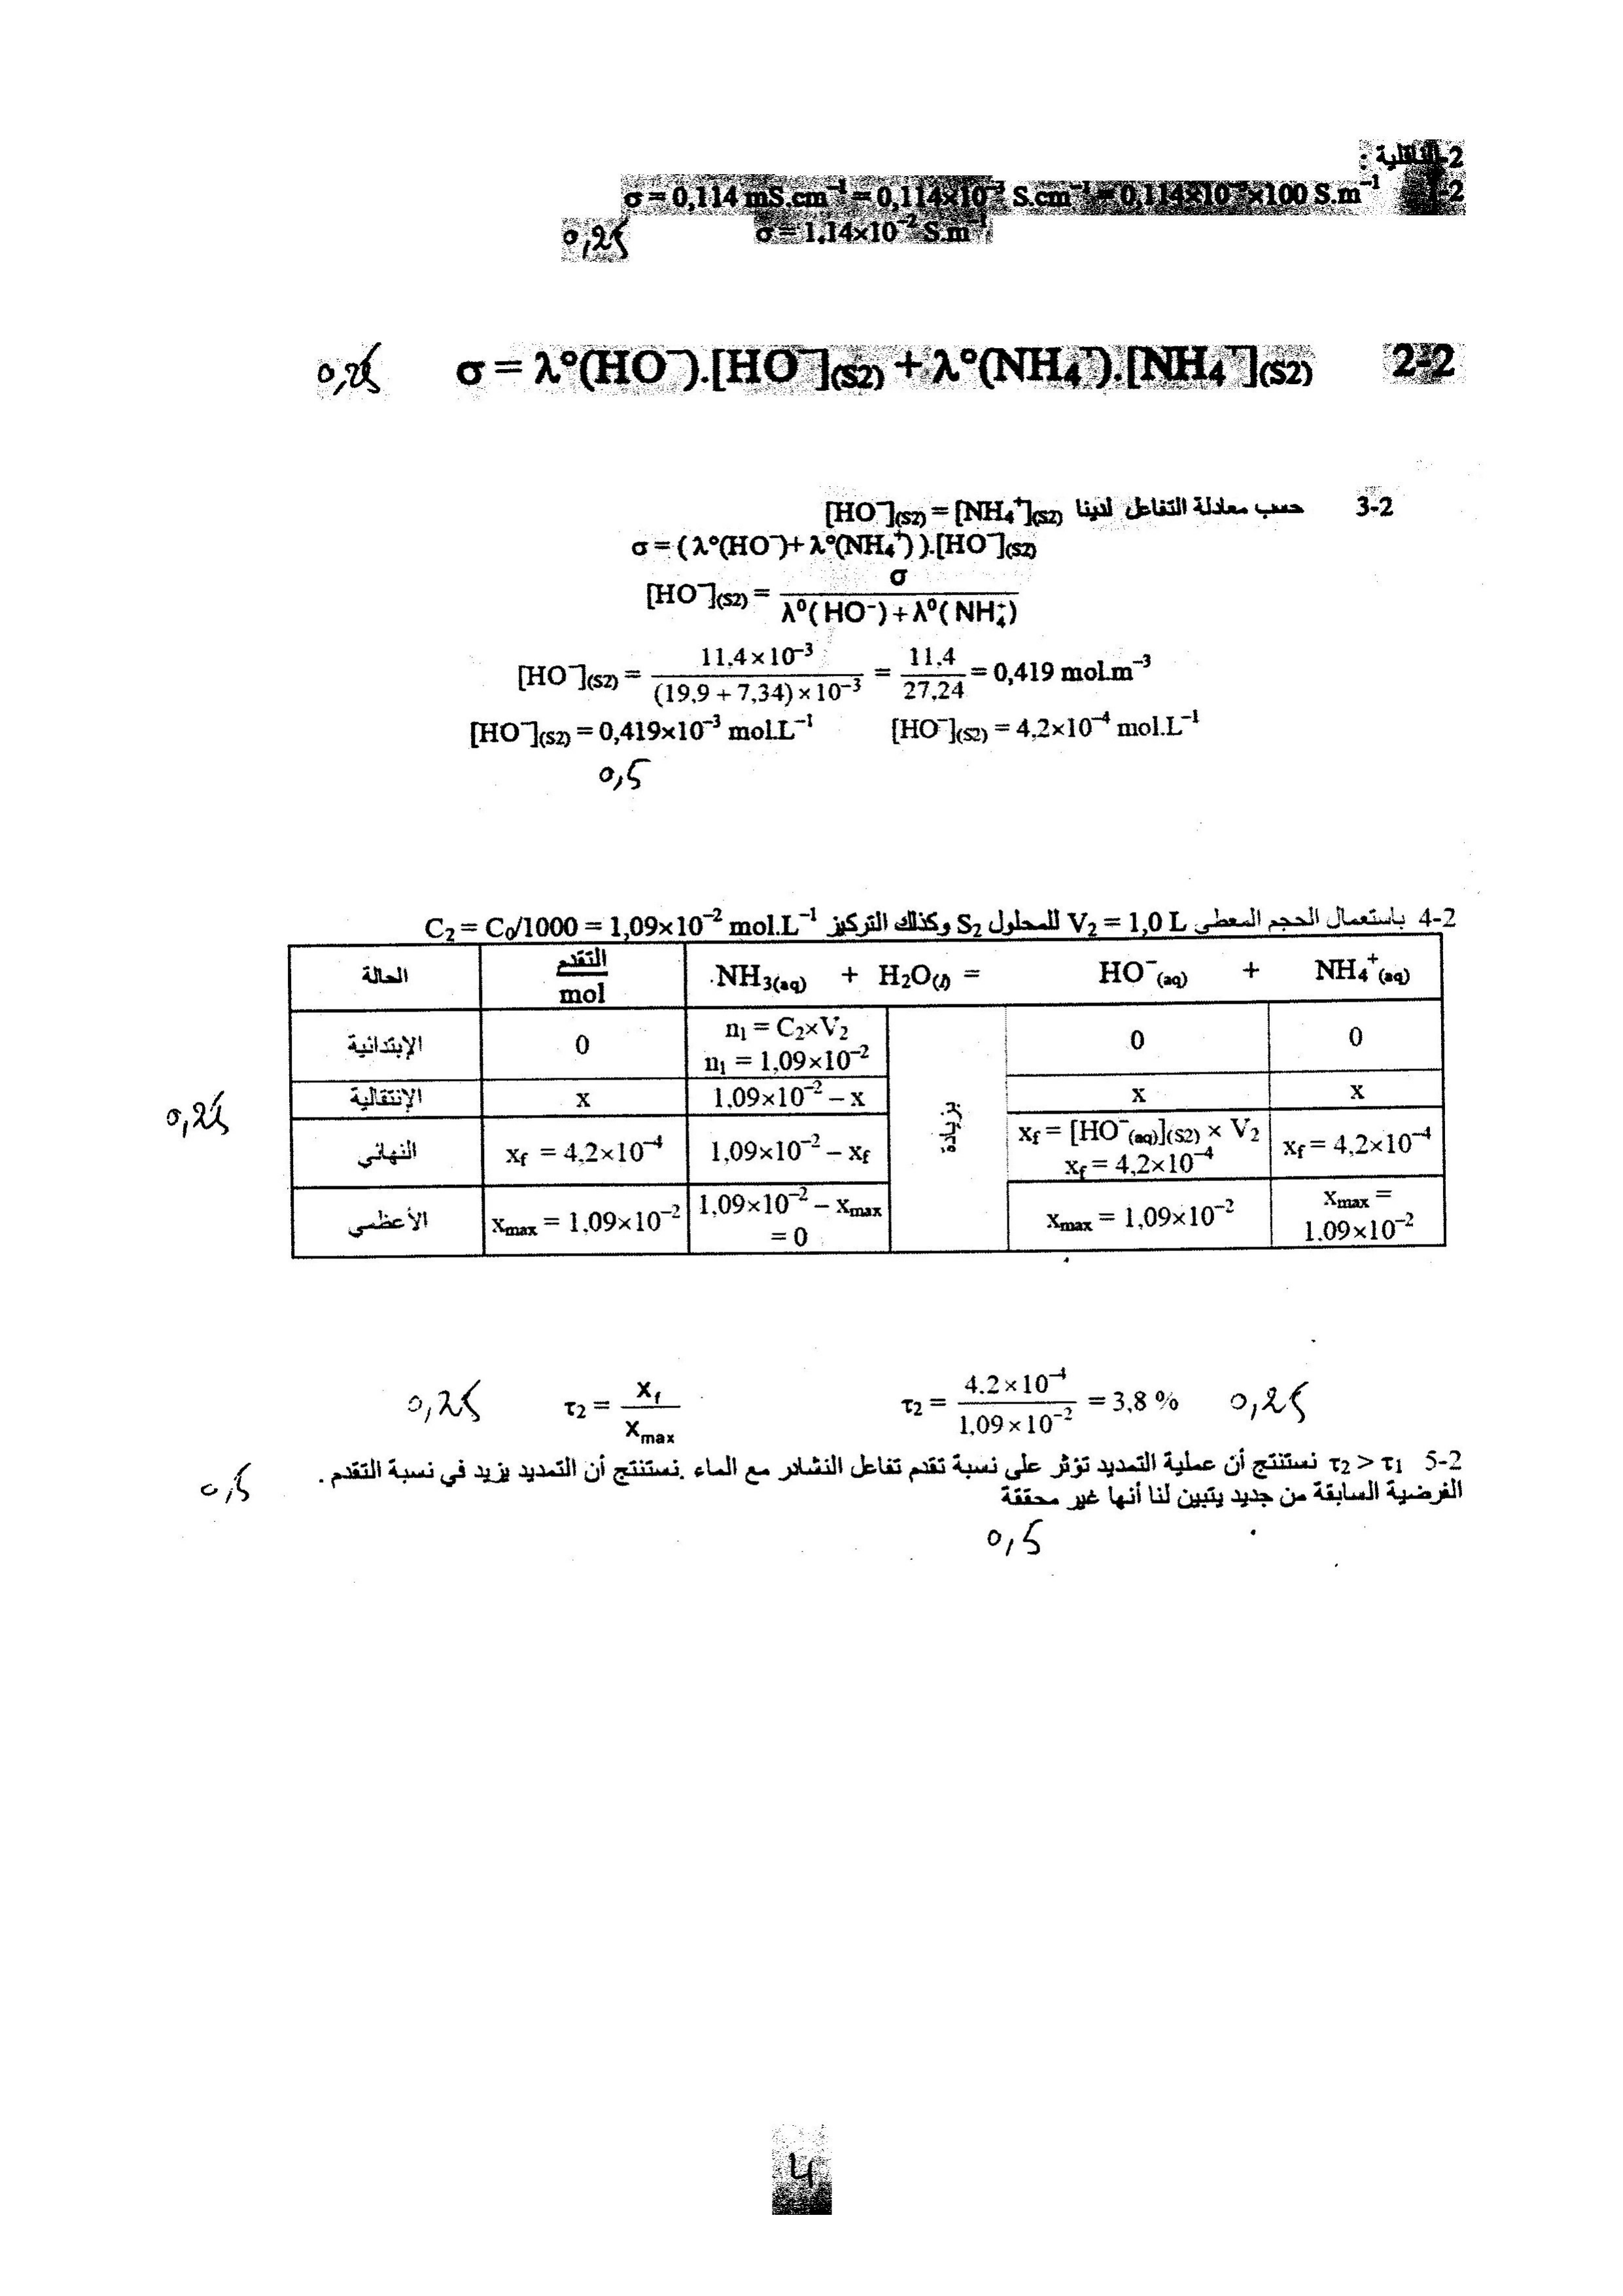 2-الناقلية :
1-2 σ = 0,114 mS.cm⁻¹ = 0,114×10⁻³ S.cm⁻¹ = 0,114×10⁻³×100 S.m⁻¹
σ = 1,14×10⁻² S.m⁻¹
0,25
2-2 σ = λ°(HO⁻).[HO⁻](S2) + λ°(NH₄⁺).[NH₄⁺](S2) 0,25
3-2 حسب معادلة التفاعل لدينا [HO⁻](S2) = [NH₄⁺](S2)
σ = ( λ°(HO⁻)+ λ°(NH₄⁺) ).[HO⁻](S2)
[HO⁻](S2) = σ / λ⁰( HO⁻) + λ⁰( NH₄⁺)
[HO⁻](S2) = 11,4 × 10⁻³ / (19,9 + 7,34) × 10⁻³ = 11,4 / 27,24 = 0,419 mol.m⁻³
[HO⁻](S2) = 0,419×10⁻³ mol.L⁻¹ [HO⁻](S2) = 4,2×10⁻⁴ mol.L⁻¹
0,5
4-2 باستعمال الحجم المعطى V₂ = 1,0 L للمحلول S₂ وكذلك التركيز C₂ = C₀/1000 = 1,09×10⁻² mol.L⁻¹
الحالة التقدم mol NH₃(aq) + H₂O(l) = HO⁻(aq) + NH₄⁺(aq)
الإبتدائية 0 n₁ = C₂×V₂ n₁ = 1,09×10⁻² بزيادة 0 0
الإنتقالية x 1,09×10⁻² – x x x
0,25
النهائي xf = 4,2×10⁻⁴ 1,09×10⁻² – xf xf = [HO⁻(aq)](S2) × V₂ xf = 4,2×10⁻⁴ xf = 4,2×10⁻⁴
الأعظمي xmax = 1,09×10⁻² 1,09×10⁻² – xmax = 0 xmax = 1,09×10⁻² xmax = 1.09×10⁻²
0,25 τ₂ = xf / xmax τ₂ = 4.2 × 10⁻⁴ / 1,09 × 10⁻² = 3,8 % 0,25
5-2 τ₂ > τ₁ نستنتج أن عملية التمديد تؤثر على نسبة تقدم تفاعل النشادر مع الماء .نستنتج أن التمديد يزيد في نسبة التقدم .
0,5
الفرضية السابقة من جديد يتبين لنا أنها غير محققة
0,5
4